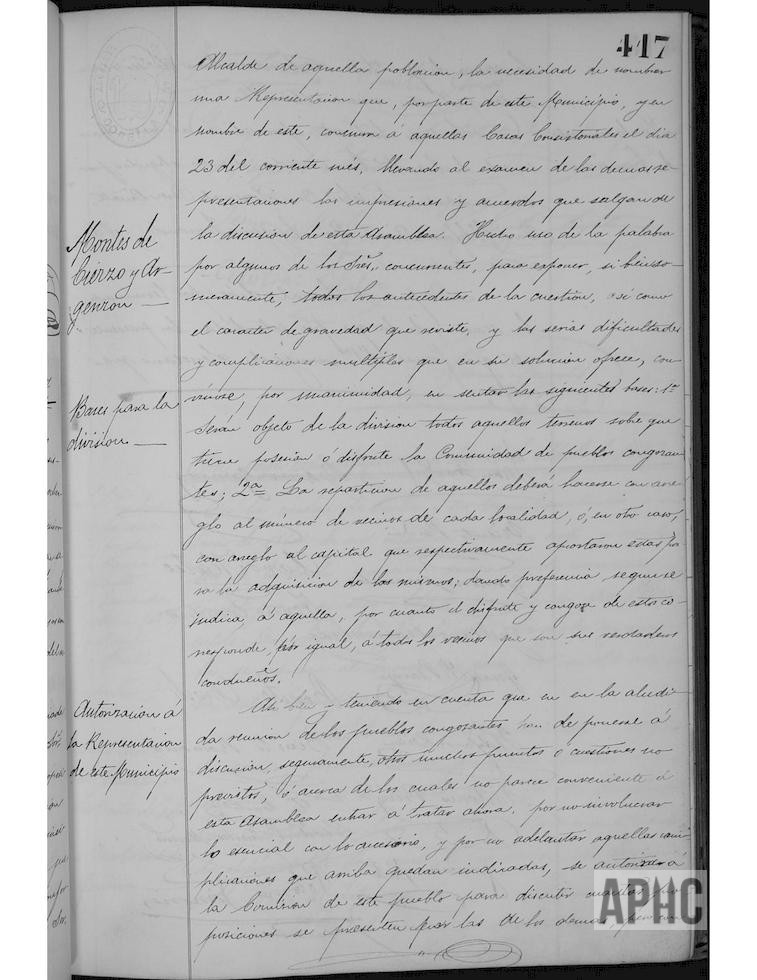 447
Alcalde de aquella poblacion, la necesidad de nombrar
una Representacion que, por parte de este Municipio, y en
nombre de este, concurra á aquellas Casas Consistoriales el dia
23 del corriente més, llevando al examen de las demas re-
presentaciones las impresiones y acuerdos que salgan de
la discusion de esta Asamblea. Hecho uso de la palabra
por algunos de los Sres. concurrentes, para exponer, si bien so-
meramente, todos los antecedentes de la cuestion, asi como
el caracter de gravedad que reviste, y las serias dificultades
y complicaciones multiples que en su solucion ofrece, con-
vinose, por unanimidad, en sentar las siguientes bases: 1ª
Serán objeto de la division todos aquellos terrenos sobre que
tiene posesion ó disfrute la Comunidad de pueblos congozan-
tes; 2ª La reparticion de aquellos deberá hacerse con arre-
glo al número de vecinos de cada localidad, ó, en otro caso,
con arreglo al capital que respectivamente aportaron estas pa-
ra la adquisicion de los mismos; dando preferencia segun se
indica, á aquella, por cuanto el disfrute y congoze de estos co-
rresponde, por igual, á todos los vecinos que son sus verdaderos
condueños.
Ahi bien y teniendo en cuenta que en en la aludi-
da reunion de los pueblos congozantes han de ponerse á
discusion, seguramente, otros muchos puntos ó cuestiones no
previstos, ó acerca de los cuales no parece conveniente á
esta Asamblea entrar á tratar ahora, por no involucrar
lo esencial con lo accesorio, y por no adelantar aquellas com-
plicaciones que arriba quedan indicadas, se autorizará á
la Comision de este pueblo para discutir cuantas pro-
posiciones se presenten por las de los demas,
Montes de
Cierzo y Ar-
genzon —
Bases para la
division —
Autorizacion á
la Representacion
de este Municipio
APHC